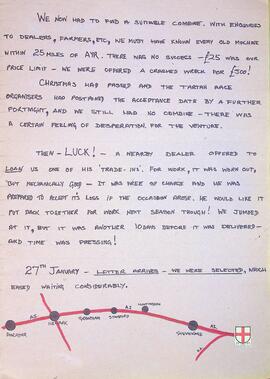 WE NOW HAD TO FIND A SUITABLE COMBINE. WITH ENQUIRIES
TO DEALERS, FARMERS, ETC, WE MUST HAVE KNOWN EVERY OLD MACHINE
WITHIN 25 MILES OF AYR. THERE WAS NO SUCCESS - £25 WAS OUR
PRICE LIMIT - WE WERE OFFERED A CRASHED WRECK FOR £300!
CHRISTMAS HAD PASSED AND THE TARTAN RACE
ORGANISERS HAD POSTPONED THE ACCEPTANCE DATE BY A FURTHER
FORTNIGHT, AND WE STILL HAD NO COMBINE - THERE WAS
A CERTAIN FEELING OF DESPERATION FOR THE VENTURE.
THEN - LUCK! - A NEARBY DEALER OFFERED TO
LOAN US ONE OF HIS 'TRADE-INS'. FOR WORK, IT WAS WORN OUT,
BUT MECHANICALLY GOOD - IT WAS FREE OF CHARGE AND HE WAS
PREPARED TO ACCEPT ITS LOSS IF THE OCCASION AROSE. HE WOULD LIKE IT
PUT BACK TOGETHER FOR WORK NEXT SEASON THOUGH! WE JUMPED
AT IT, BUT IT WAS ANOTHER 10 DAYS BEFORE IT WAS DELIVERED -
AND TIME WAS PRESSING!
27TH JANUARY - LETTER ARRIVES - WE WERE SELECTED,
EASED WAITING CONSIDERABLY.
DONCASTER
A1
NEWARK
GRANTHAM
STAMFORD
A1
HUNTINGDON
STEVENAGE
A1